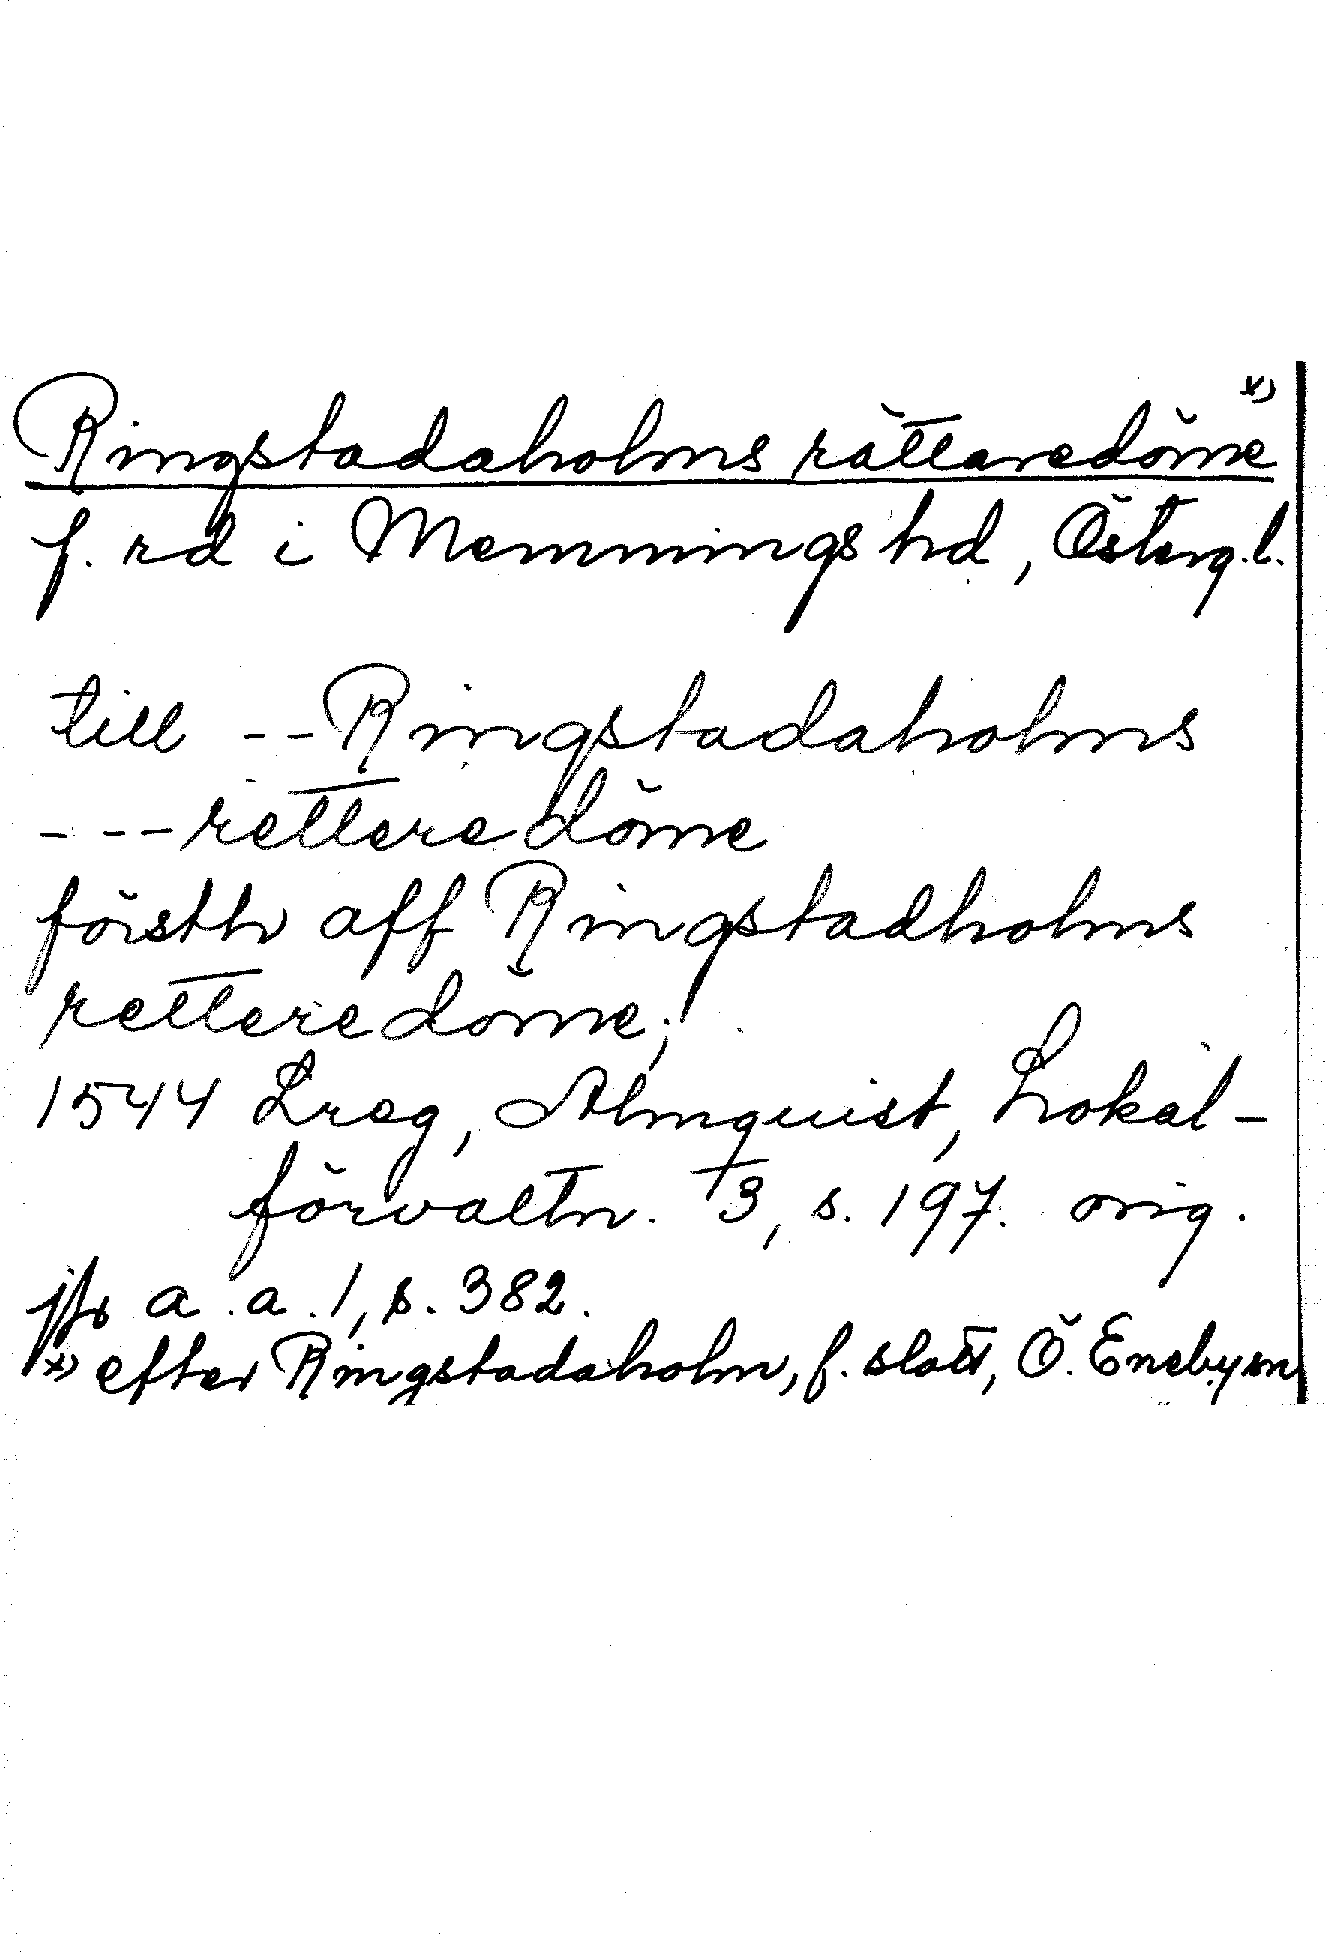 Ringstadaholms rättaredöme x)
f. rd i Memmings hd, Österg.l.
till -- Ringstadaholms
--- retteredöme
försth aff Ringstadholms
retteredöme;
1544 Lreg, Almquist, Lokal-
förvaltn. 3, s. 197. orig.
jfr a.a. 1, s. 382.
x) efter Ringstadaholm, f. slott, Ö. Eneby sn